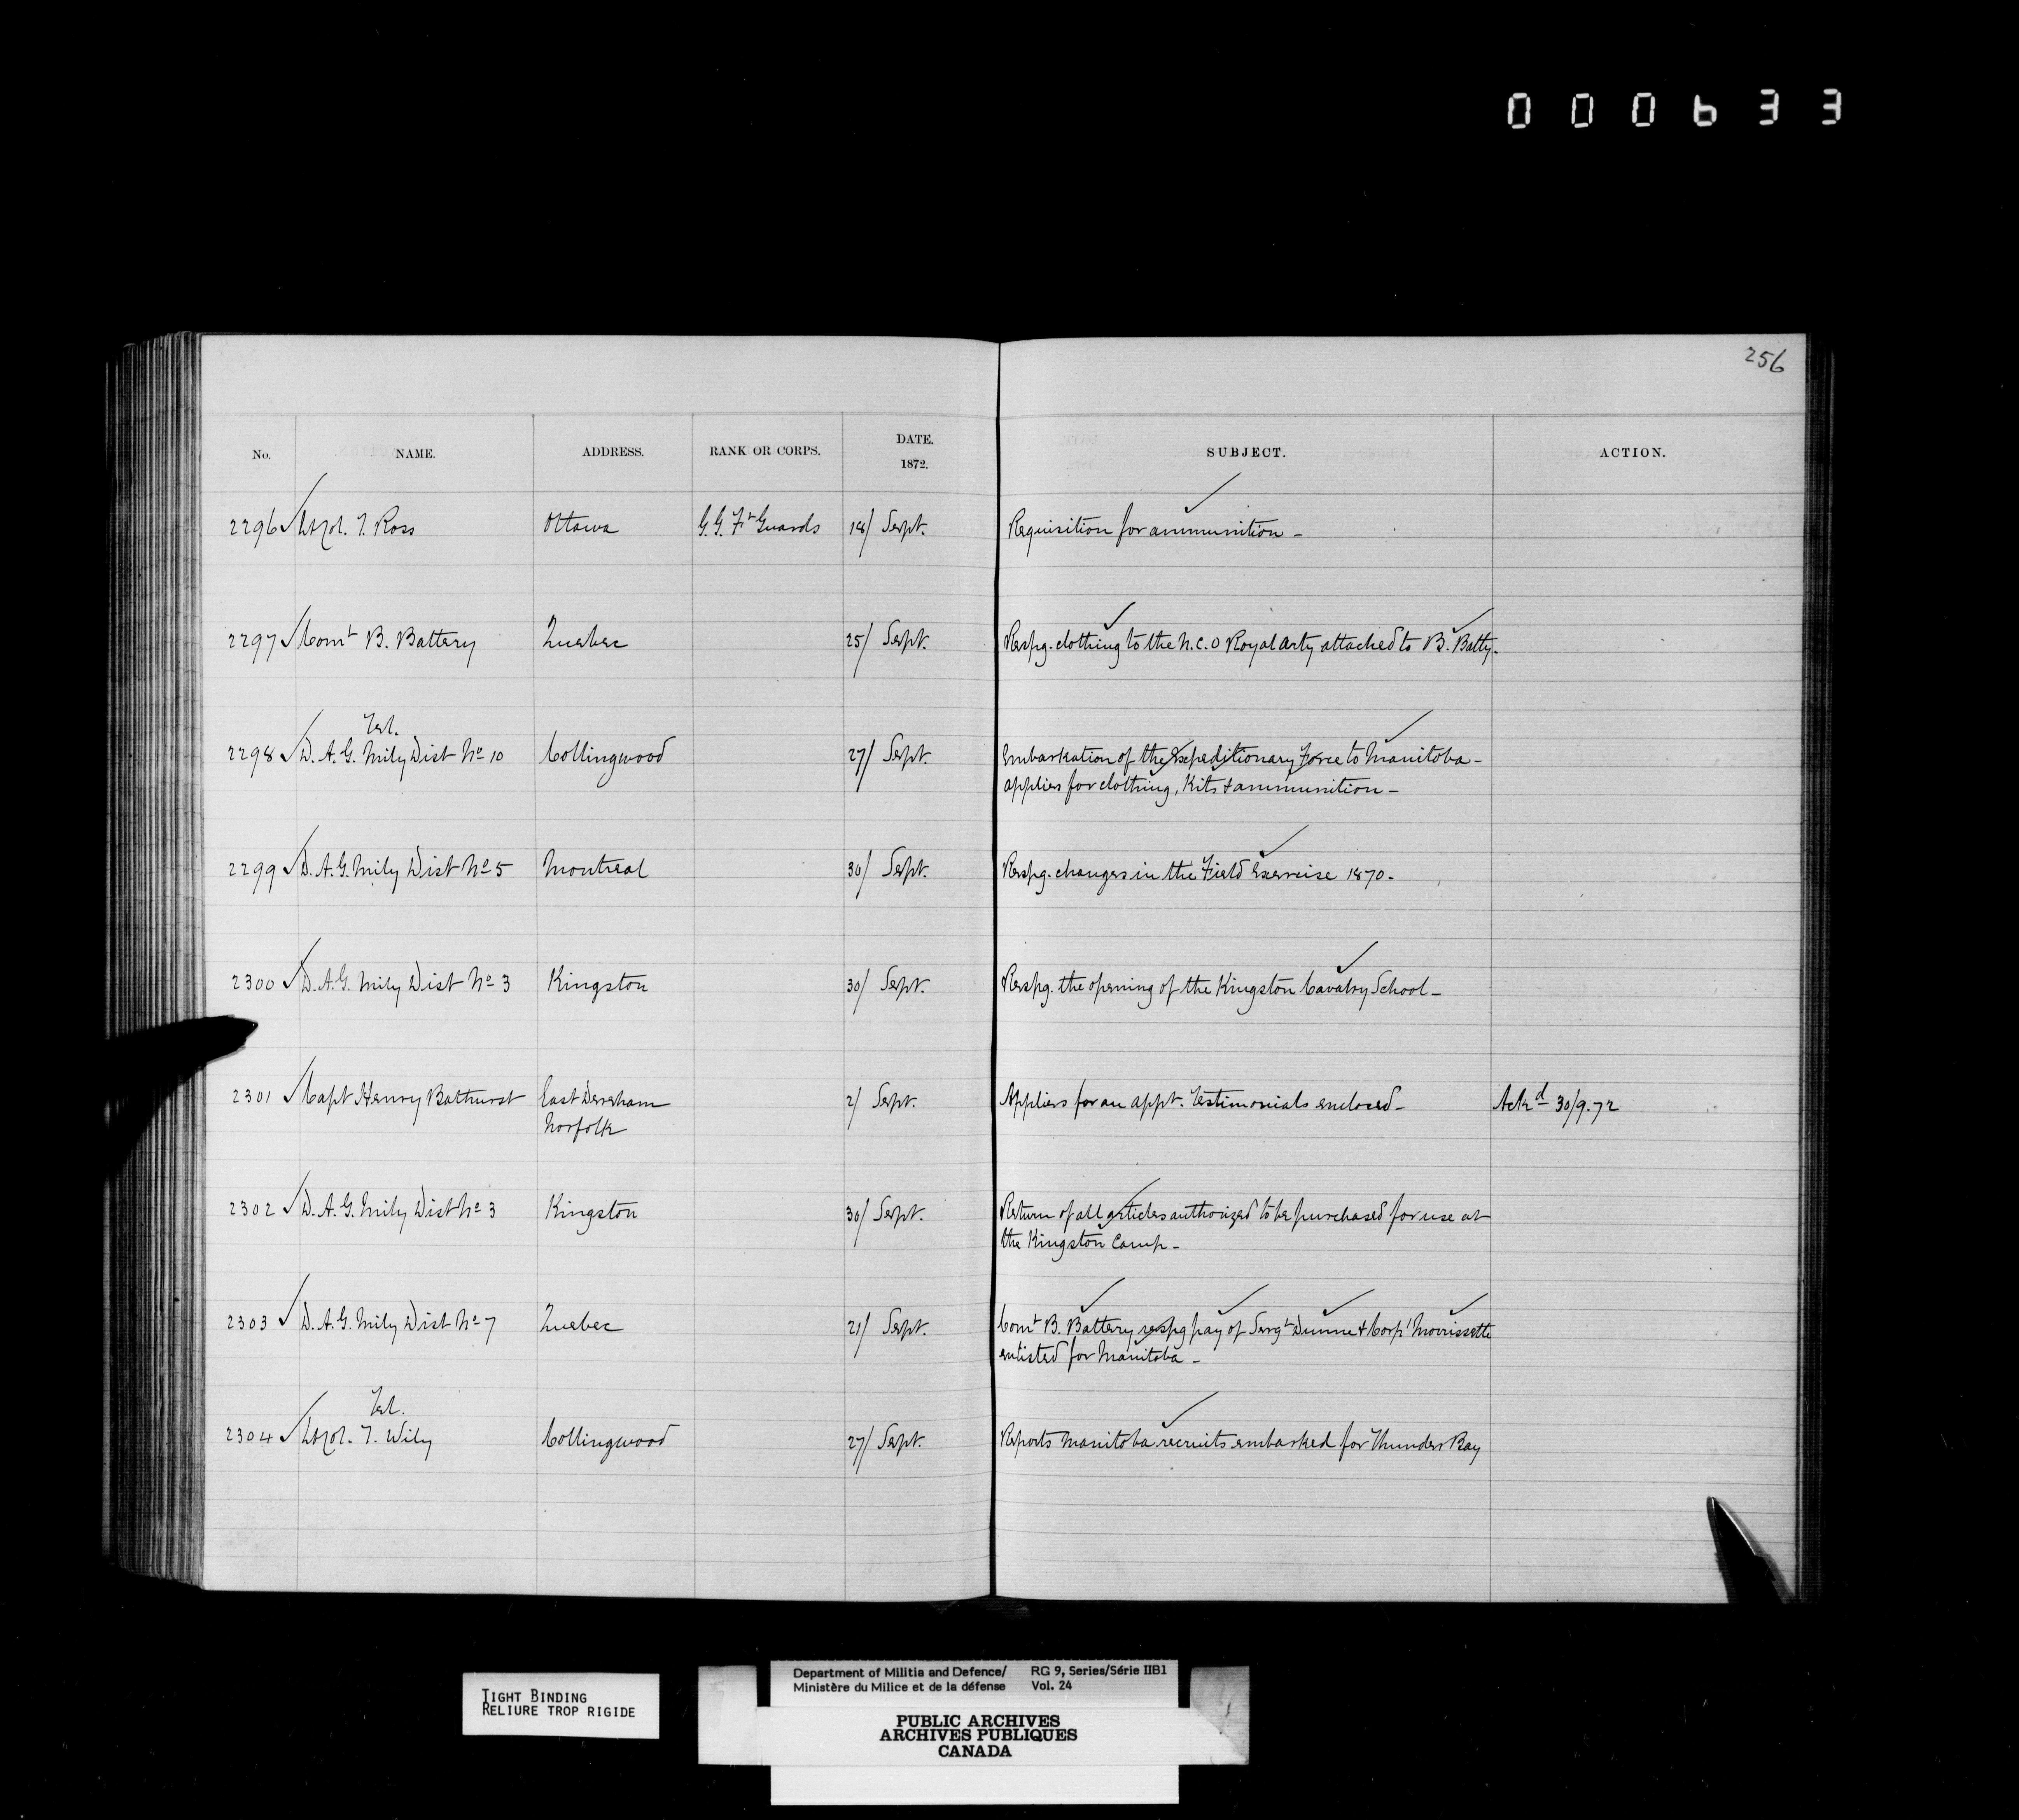 000633
256
No. NAME. ADDRESS. RANK OR CORPS. DATE. 1872. SUBJECT. ACTION.
2296 Lt Col. T. Ross Ottawa G.G. Ft Guards 18/ Sept. Requisition for ammunition -
2297 Comt B. Battery Quebec 25/ Sept. Respg. clothing to the N.C.O Royal Arty attached to B. Batty.
Tel.
2298 D. A. G. Mily Dist No 10 Collingwood 27/ Sept. Embarkation of the Expeditionary Force to Manitoba -
applies for clothing, Kits + ammunition -
2299 D. A. G. Mily Dist No 5 Montreal 30/ Sept. Respg. changes in the Field Exercise 1870 -
2300 D. A. G. Mily Dist No 3 Kingston 30/ Sept. Respg. the opening of the Kingston Cavalry School -
2301 Capt Henry Bathurst East Dereham 2/ Sept. Applies for an appt. Testimonials enclosed - Ackd 30/9.72
Norfolk
2302 D. A. G. Mily Dist No 3 Kingston 30/ Sept. Return of all articles authorized to be purchased for use at
the Kingston Camp -
2303 D. A. G. Mily Dist No 7 Quebec 21/ Sept. Comt B. Battery respg pay of Sergt Dunne + Corpl Morrissette
enlisted for Manitoba -
Tel.
2304 Lt Col. T. Wily Collingwood 27/ Sept. Reports Manitoba recruits embarked for Thunder Bay
TIGHT BINDING
RELIURE TROP RIGIDE
Department of Militia and Defence/ RG 9, Series/Série IIB1
Ministère du Milice et de la défense Vol. 24
PUBLIC ARCHIVES
ARCHIVES PUBLIQUES
CANADA